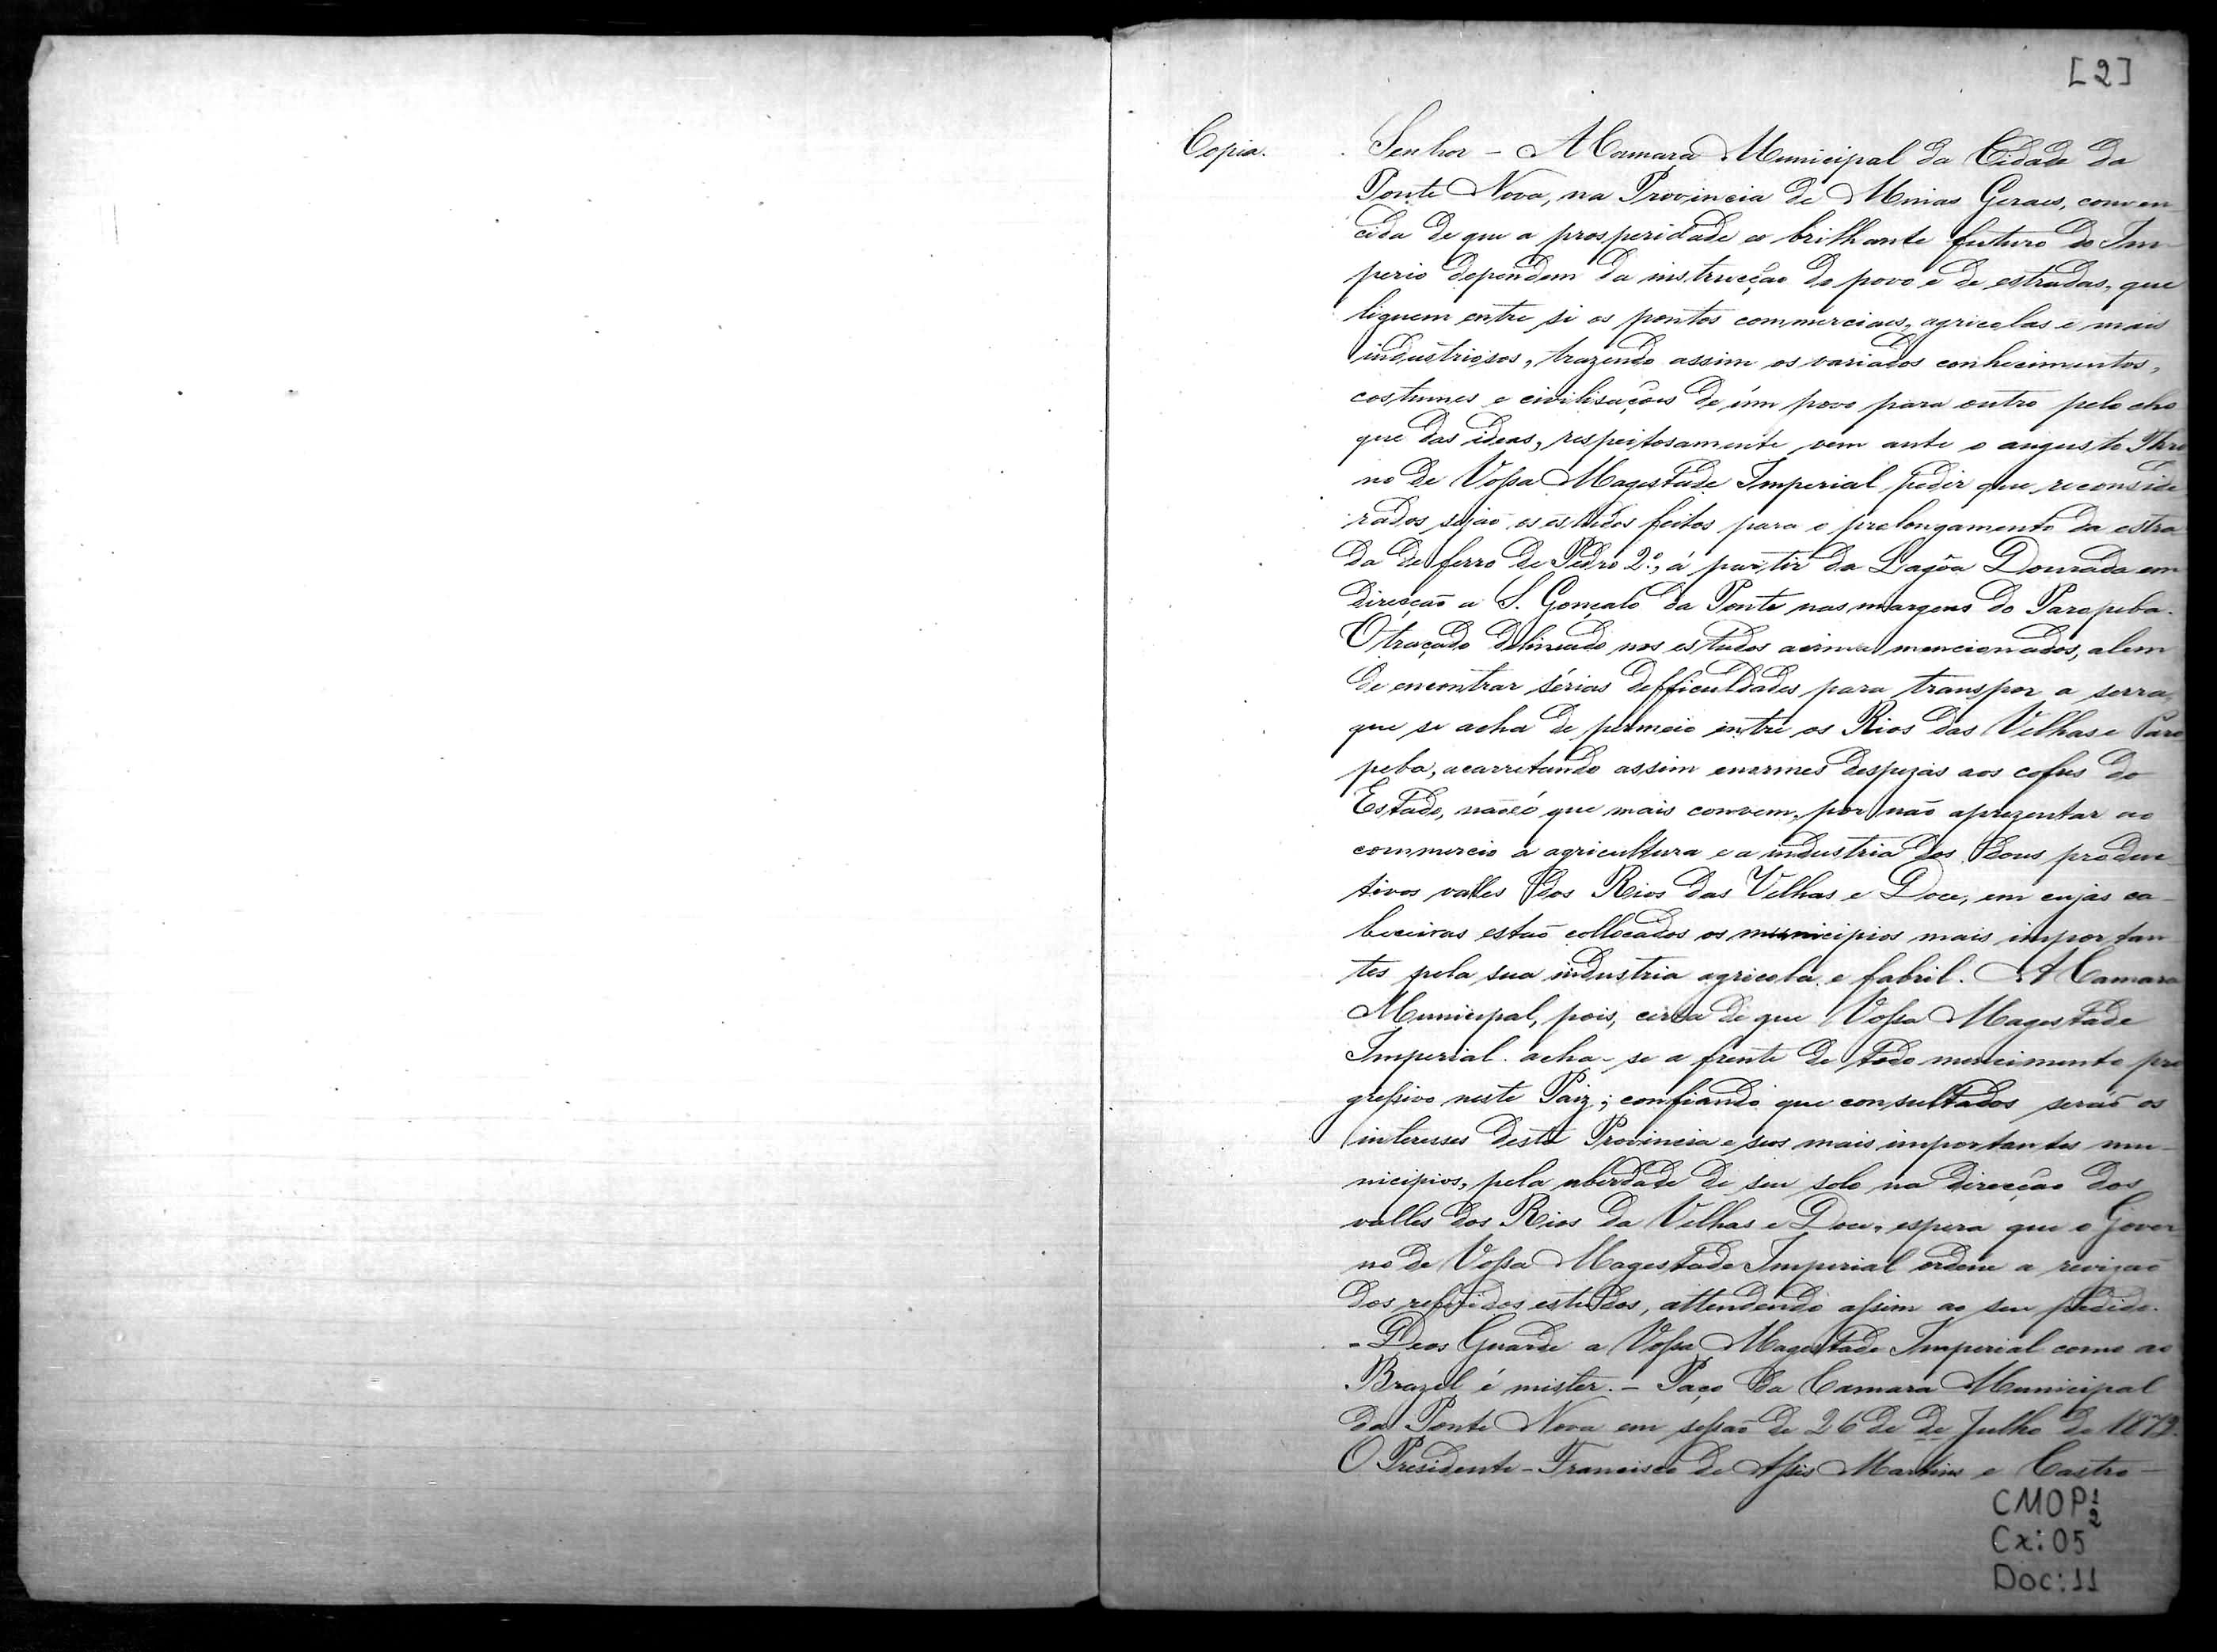 [2]
Copia.
Senhor - A Camara Municipal da Cidade da
Ponte Nova, na Provincia de Minas Geraes, conven-
cida de que a prosperidade eo brilhante futuro do Im-
perio dependem da instrucção do povo e de estradas, que
liguem entre si os pontos commerciaes, agricolas e mais
industriosos, trazendo assim os variados conhecimentos,
costumes e civilisações de úm povo para outro pelo cho
que das ideas, respeitosamente vem ante o augusto Thro
no de Vossa Magestade Imperial pedir que reconside
rados sejaõ os estudos feitos para o prolongamento da estra
da de ferro de Pedro 2º, á partir da Lagôa Dourada em
direcçaõ a S. Gonçalo da Ponte nas margens do Paropeba.
O traçado delineado nos estudos acima mencionados, alem
de encontrar sérias defficuldades para transpor a serra,
que se acha de permeio entre os Rios das Velhas e Paro
peba, acarretando assim enormes despezas aos cofres do
Estado, naõ é que mais convem, por naõ aprezentar ao
commercio a agricultura e a industria dos dous produc
tivos valles dos Rios das Velhas e Doce, em cujas ca-
beceiras estaõ collocados os municipios mais importan
tes pela sua industria agricola e fabril. A Camara
Municipal, pois, certa de que Vossa Magestade
Imperial acha-se a frente de todo mericimento pro
gressivo neste Paiz; confiando que consultados seraõ os
interesses desta Provincia e seos mais importantes mu-
nicipios, pela uberdade de seu solo na direcção dos
valles dos Rios da Velhas e Doce, espera que o Gover
no de Vossa Magestade Imperial ordene a revizaõ
dos referidos estudos, attendendo assim ao seu pedido.
- Deos Guarde a Vossa Magestade Imperial como ao
Brazil é mister. - Paço da Camara Municipal
da Ponte Nova em sessaõ de 26 de de Julho de 1872.
O Presidente - Francisco de Assis Martins e Castro -
CMOP 1/2
Cx: 05
Doc: 11